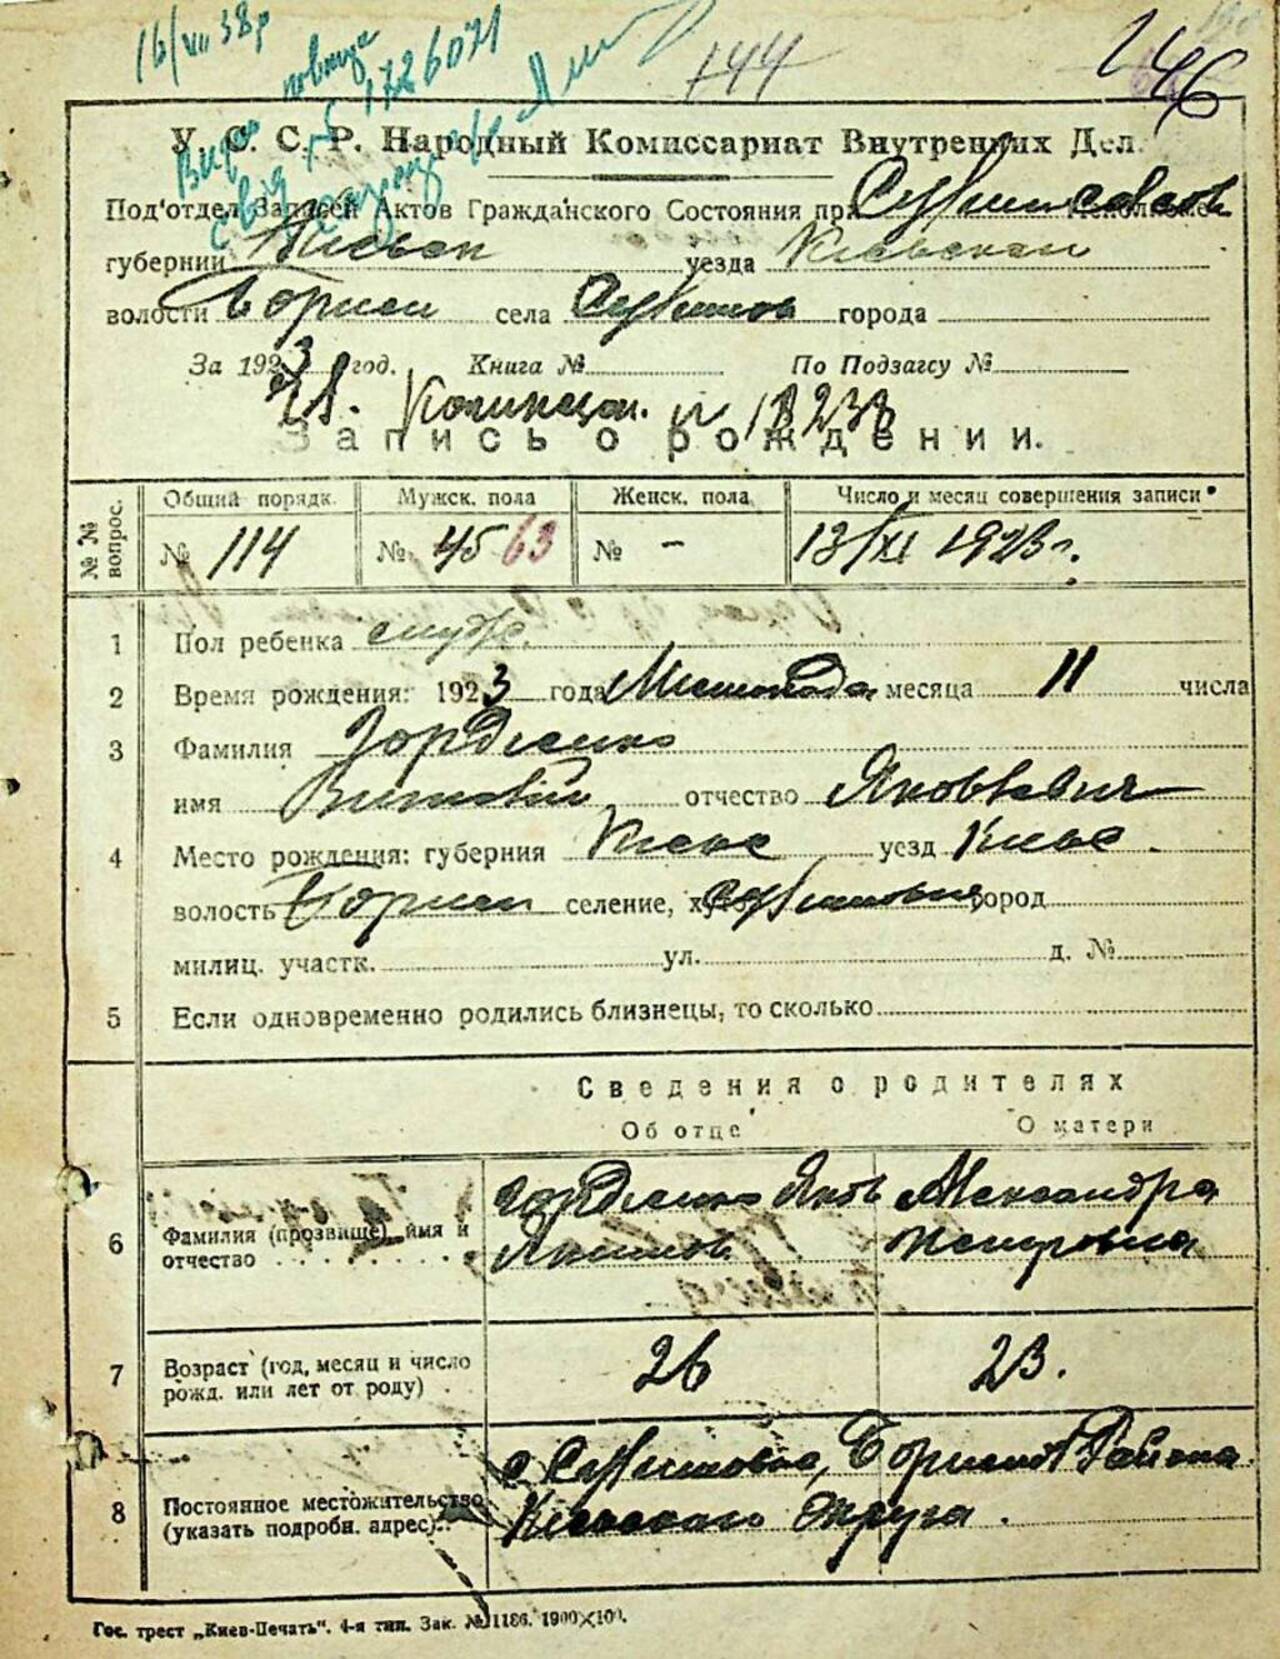 16/VII 38р
повт
1726071
144
246
У. С. С. Р. Народный Комиссариат Внутренних Дел.
Под'отдел Записей Актов Гражданского Состояния при
губернии Киевск уезда Киевской
волости села города
За 1923 год. Книга № По Подзагсу №
Запись о рождении.
№№ вопрос.
Общий порядк. Мужск. пола Женск. пола Число и месяц совершения записи
№ 114 № 45 63 № - 13/XI 1923 г.
1 Пол ребенка
2 Время рождения: 1923 года Листопада месяца 11 числа
3 Фамилия Гордиенко
имя Виталий отчество Яковлевич
4 Место рождения: губерния Киевс уезд Киевс.
волость селение, город
милиц. участк. ул. д. №
5 Если одновременно родились близнецы, то сколько
Сведения о родителях
Об отце О матери
6 Фамилия (прозвище), имя и отчество Гордиенко Яков Александра
Петровна
7 Возраст (год, месяц и число рожд. или лет от роду) 26 23.
8 Постоянное местожительство (указать подробн. адрес) с. Района
Киевского Округа.
Гос. трест „Киев-Печать". 4-я тип. Зак. № 1186. 1900×100.